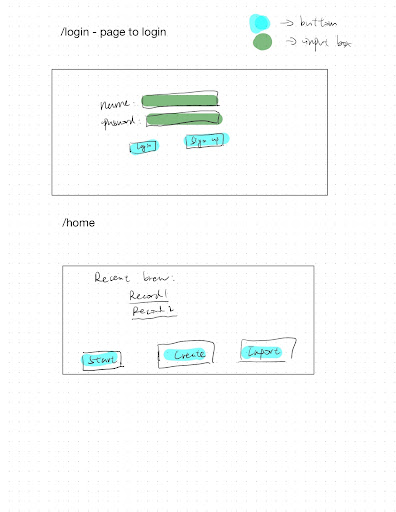 /login - page to login
→ button
→ input box
name:
password:
login
Sign up
/home
Recent brew:
Record1
Record 2
Start
Create
Import